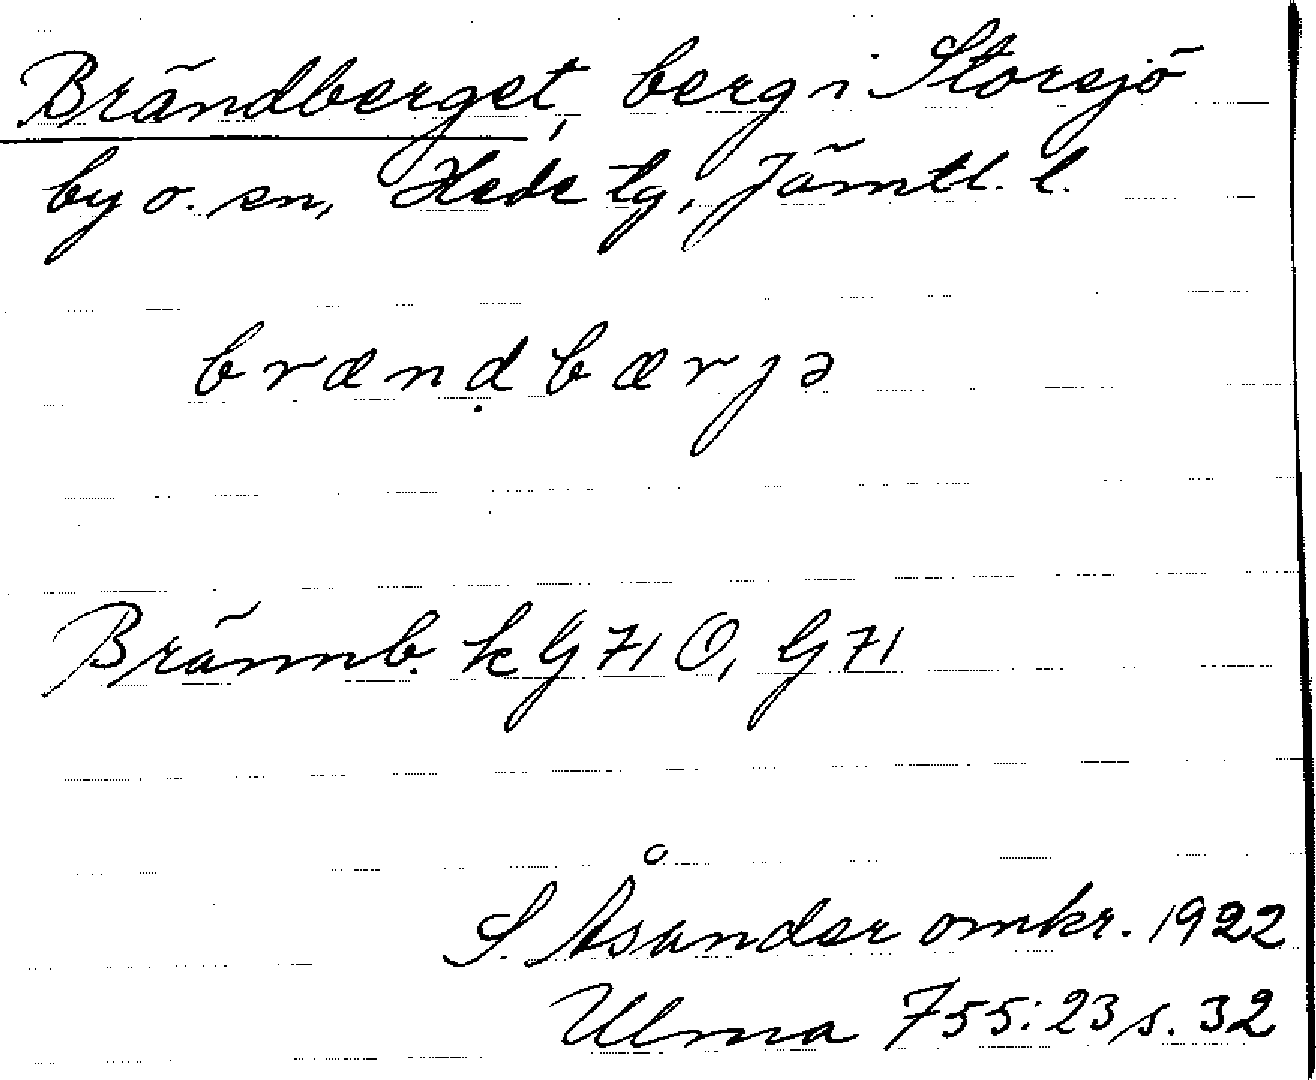 Brändberget, berg i Storsjö
by o. sn, Hede tg, Jämtl. l.
brændḅærjə
Brännb. k G 71 O, G 71
S. Åsander omkr. 1922
Ulma 755:23 s. 32